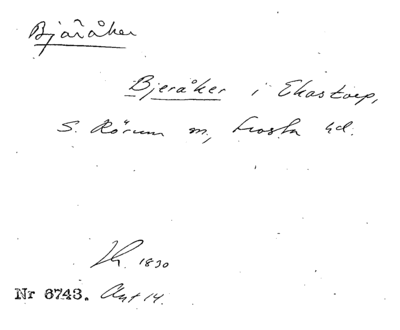 Bjäråker
Bjeråker i Ekastorp,
S. Rörum sn, Frosta hd.
1830
Nr 6743. Akt 14.